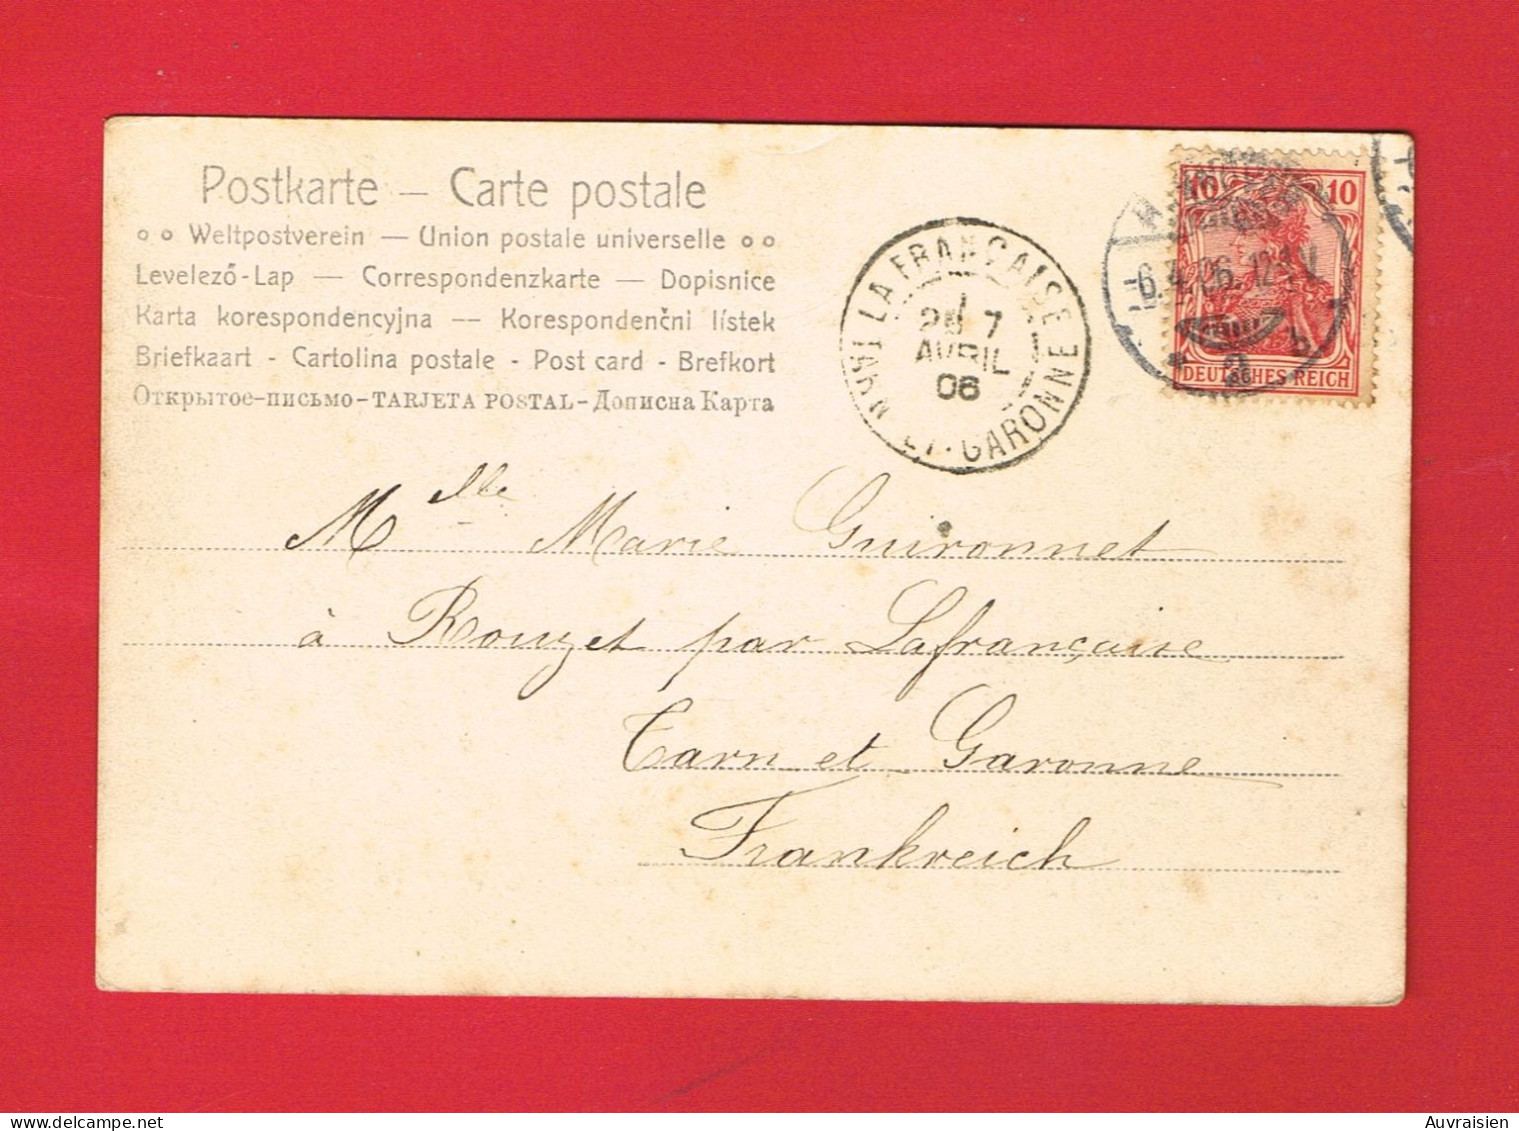 Postkarte — Carte postale
Weltpostverein — Union postale universelle
Levelező-Lap — Correspondenzkarte — Dopisnice
Karta korespondencyjna — Korespondenčni lístek
Briefkaart - Cartolina postale - Post card - Brefkort
Открытое-письмо-TARJETA POSTAL-Дописна Карта
LA FRANÇAISE
7
AVRIL
06
ET-GARONNE
10 10
6.4.06.12-1N
DEUTSCHES REICH
Mlle Marie Guironnet
à Rouzet par Lafrançaise
Tarn et Garonne
Frankreich
Auvraisien